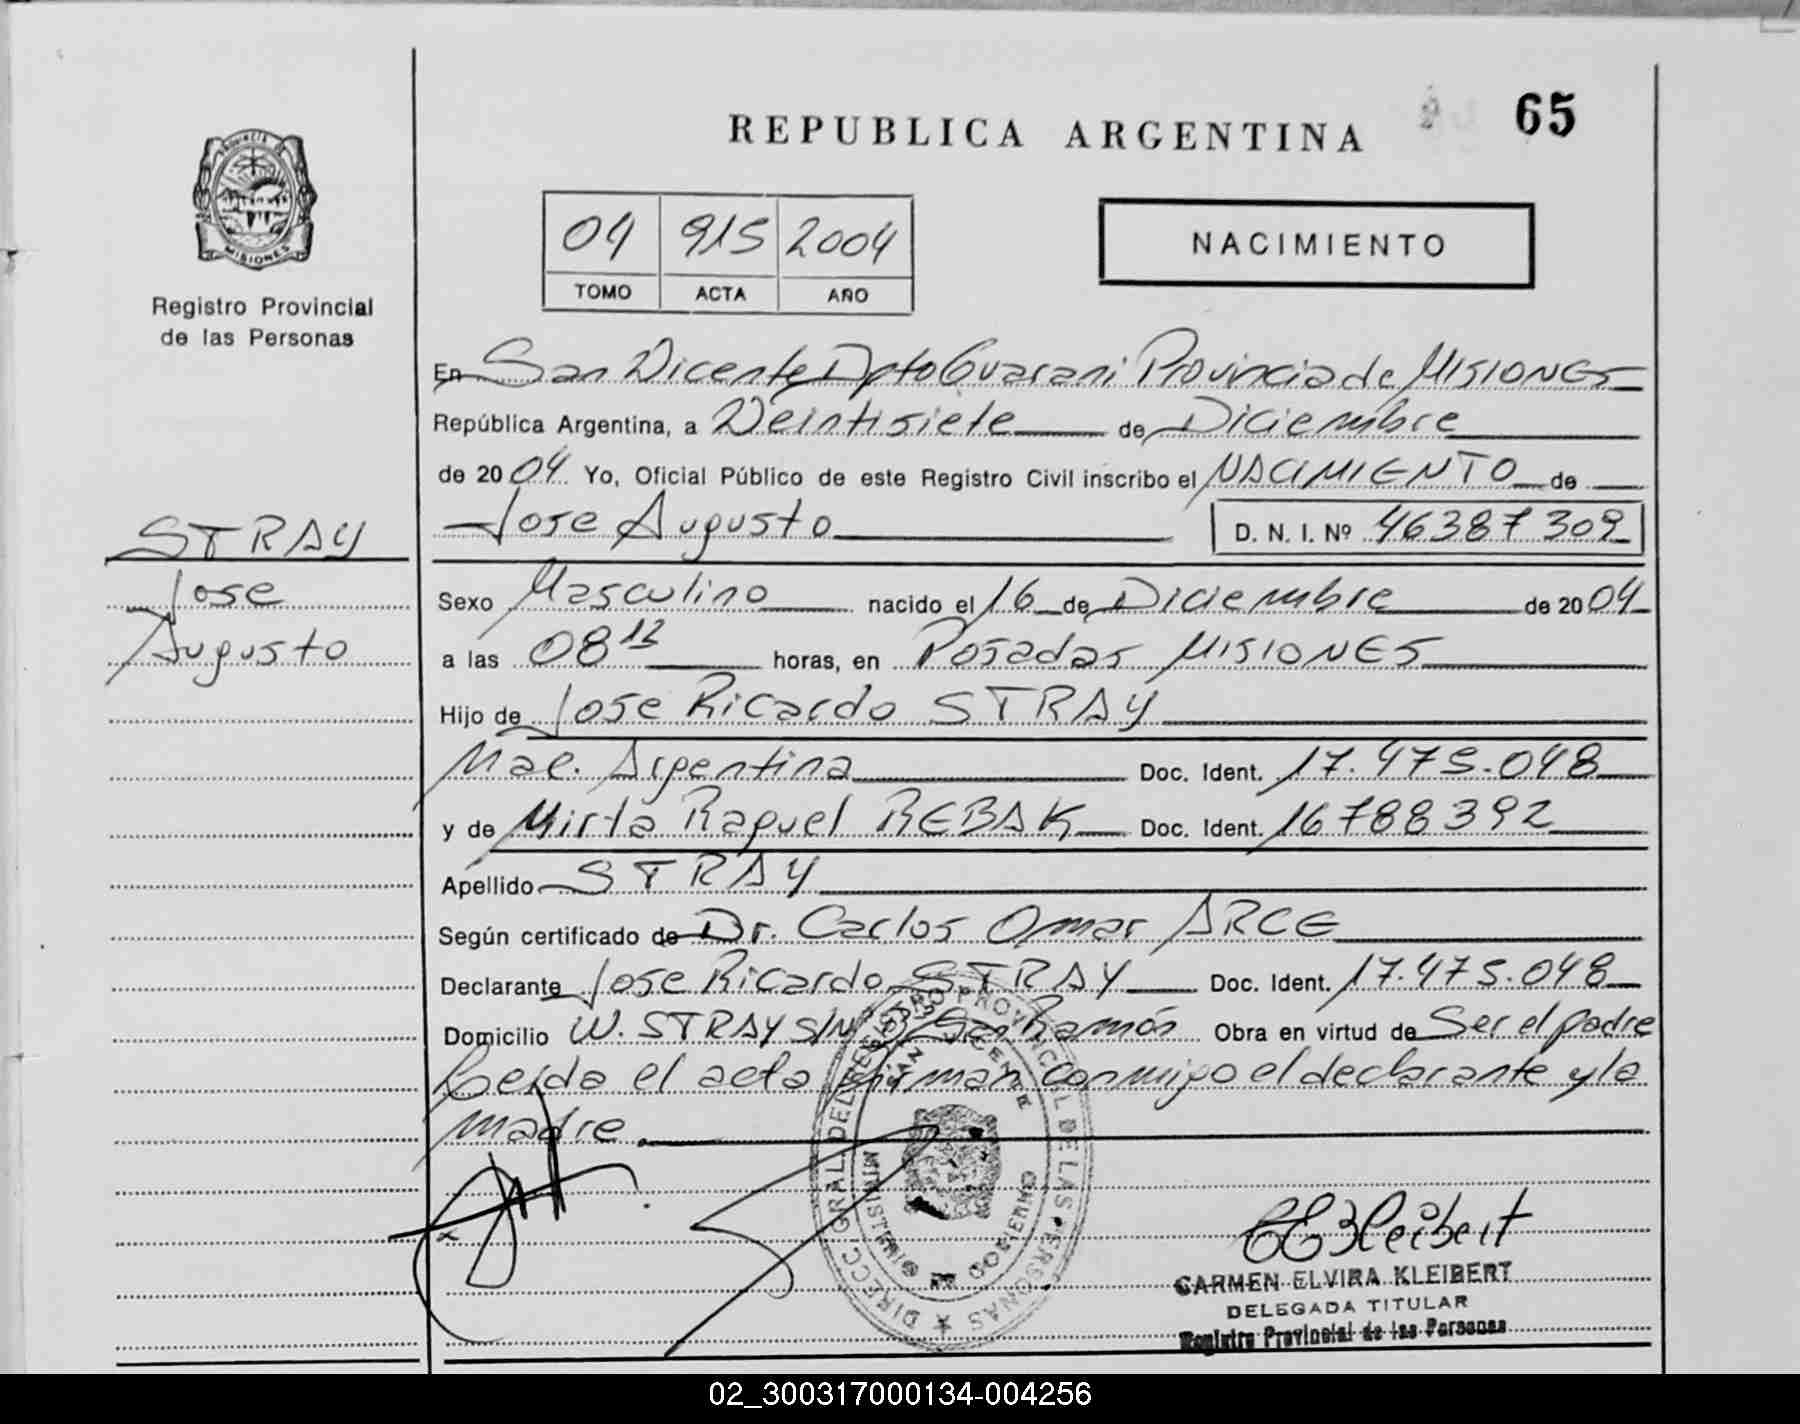 65
REPUBLICA ARGENTINA
PROVINCIA
MISIONES
Registro Provincial
de las Personas
04 915 2004
TOMO ACTA AÑO
NACIMIENTO
En San Vicente Dpto Guarani Provincia de MISIONES
República Argentina, a Veintisiete de Diciembre
de 2004 Yo, Oficial Público de este Registro Civil inscribo el NACIMIENTO de
Jose Augusto D. N. I. Nº 46387309
STRAY
Jose
Augusto
Sexo Masculino nacido el 16 de Diciembre de 2004
a las 08 12 horas, en Posadas MISIONES
Hijo de Jose Ricardo STRAY
Nac. Argentina Doc. Ident. 17.475.048
y de Mirta Raquel REBAK Doc. Ident. 16788392
Apellido STRAY
Según certificado de Dr. Carlos Omar ARCE
Declarante Jose Ricardo STRAY Doc. Ident. 17.475.048
Domicilio W. STRAY S/N San Ramón Obra en virtud de Ser el padre
Leida el acta firman conmigo el declarante y la
madre.
DIRECC. GRAL. DEL REGISTRO PROVINCIAL DE LAS PERSONAS
SAN VICENTE
MINISTERIO DE GOBIERNO
CEKleibert
CARMEN ELVIRA KLEIBERT
DELEGADA TITULAR
Registro Provincial de las Personas
02_300317000134-004256